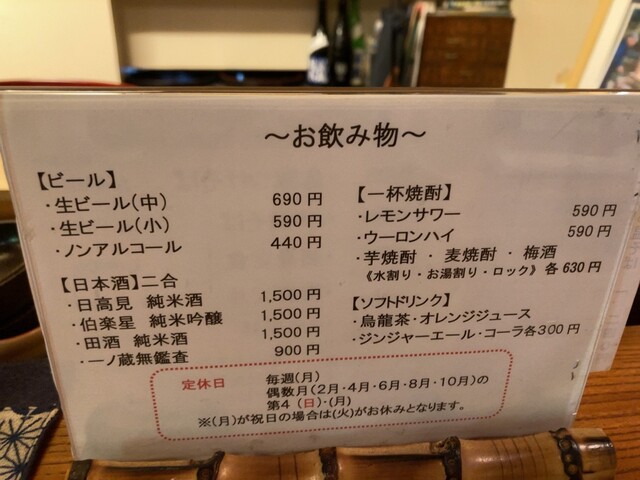 ～お飲み物～
【ビール】
・生ビール(中) 690円
・生ビール(小) 590円
・ノンアルコール 440円
【日本酒】二合
・日高見 純米酒 1,500円
・伯楽星 純米吟醸 1,500円
・田酒 純米酒 1,500円
・一ノ蔵無鑑査 900円
【一杯焼酎】
・レモンサワー 590円
・ウーロンハイ 590円
・芋焼酎・麦焼酎・梅酒
《水割り・お湯割り・ロック》各630円
【ソフトドリンク】
・烏龍茶・オレンジジュース
・ジンジャーエール・コーラ各300円
定休日 毎週(月)
偶数月(2月・4月・6月・8月・10月)の
第4(日)・(月)
※(月)が祝日の場合は(火)がお休みとなります。